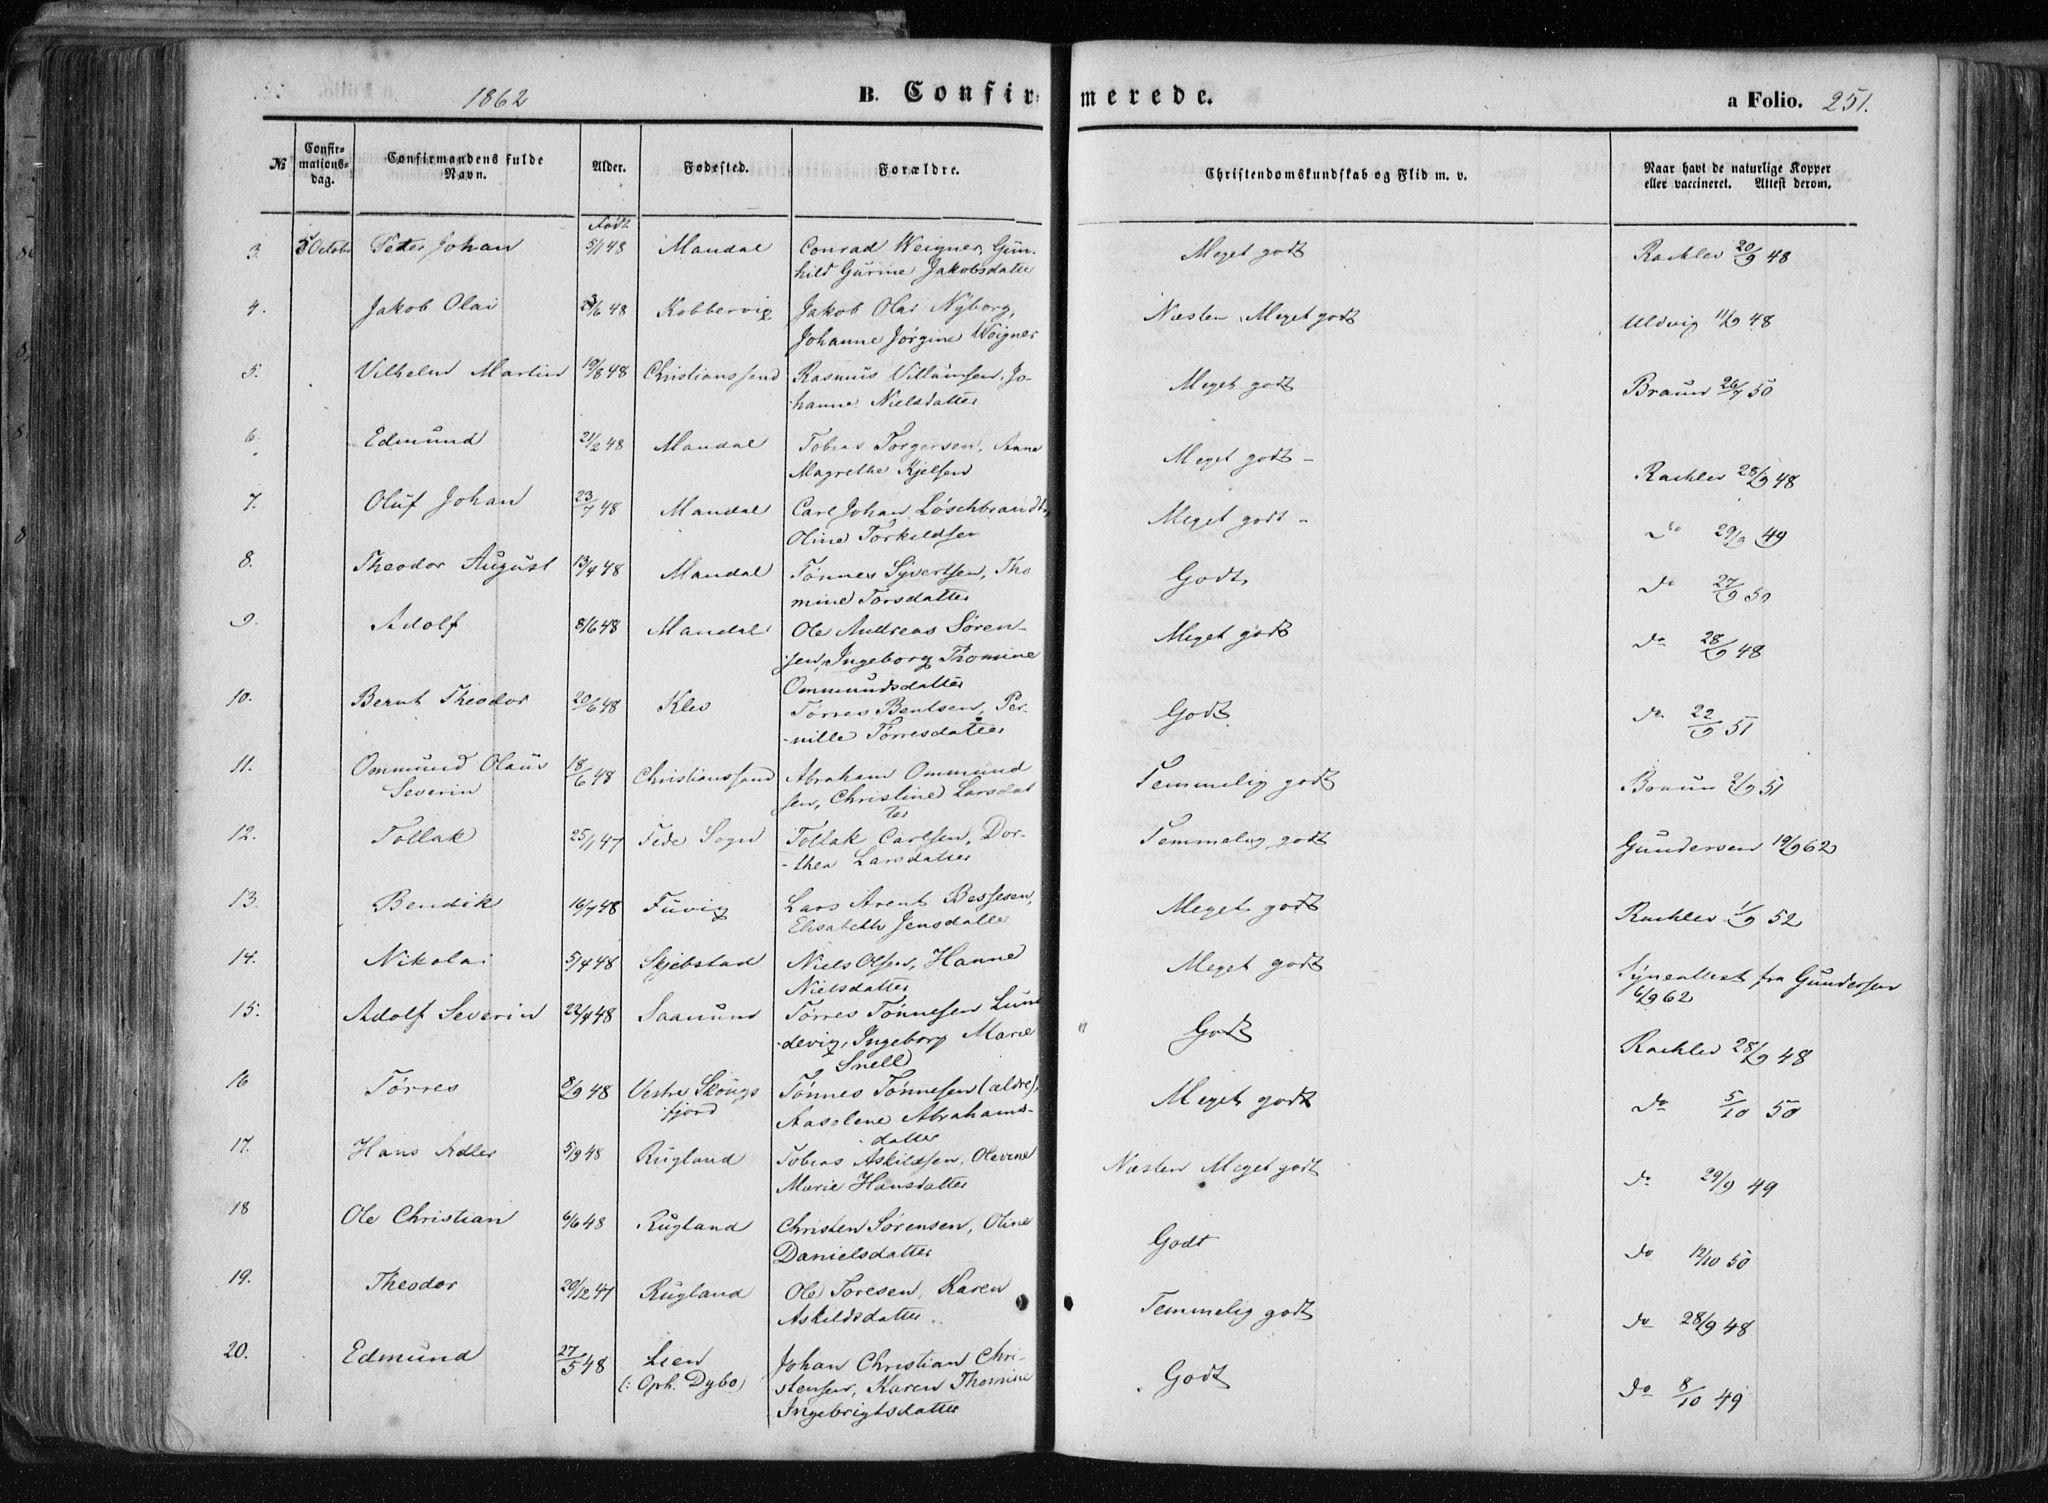 1862
B. Confirmerede.
a Folio. 251.
№
Confir-
mations-
dag.
Confirmandens fulde
Navn.
Alder.
Fødested.
Forældre.
Christendomskundskab og Flid m. v.
Naar havt de naturlige Kopper
eller vaccineret. Attest derom.
Født
3. 5 Octobr Peder Johan 5/1 48 Mandal Conrad Weigner, Gun-
hild Gurine Jakobsdatter Meget godt Rachlev 20/9 48
4. Jakob Olai 23/6 48 Kobbervig Jakob Olai Nyborg,
Johanne Jørgine Weigner Næsten Meget godt Uldvig 11/9 48
5. Vilhelm Martin 19/8 48 Christianssand Rasmus Villumsen, Jo-
hanne Nielsdatter Meget godt Braun 26/7 50
6. Edmund 21/2 48 Mandal Tobias Torgersen, Anne
Magrethe Kjelsen Meget godt - Rachlev 28/9 48
7. Oluf Johan 23/7 48 Mandal Carl Johan Løschbrandt,
Oline Torkildsen Meget godt - Do 29/9 49
8. Theodor August 13/4 48 Mandal Tønnes Syvertsen, Tho
mine Torsdatter Godt Do 27/9 50
9. Adolf 8/6 48 Mandal Ole Andreas Søren-
sen, Ingeborg Thomine
Ommundsdatter Meget godt Do 28/9 48
10. Bernt Theodor 20/6 48 Klev Tørres Bentsen, Per-
nille Tørresdatter Godt Do 22/9 51
11. Ommund Olaus
Severin 18/6 48 Christianssand Abraham Ommund
sen, Christine Larsdat
ter Temmelig godt Braun 2/9 51
12. Tollak 25/1 47 Fede Sogn Tollak Carlsen, Dor-
thea Larsdatter Temmelig godt Gundersen 19/9 62
13. Bendik 16/7 48 Fuvig Lars Arent Bessesen,
Elisabeth Jensdatter Meget godt Rachlev 1/9 52
14. Nikolai 5/4 48 Skjebstad Niels Olsen, Hanne
Nielsdatter Meget godt Synsattest fra Gundersen
6/9 62
15. Adolf Severin 22/4 48 Saanum Tørres Tønnesen Lun
devig, Ingeborg Marie
Snell Godt Rachlev 28/9 48
16 Tørres 8/9 48 Vestre Skougs
fjord Tønnes Tønnesen (ældre),
Aasslene Abrahams-
datter Meget godt Do 5/10 50
17. Hans Adler 5/9 48 Rugland Tobias Askildsen, Olevine
Marie Hansdatter Næsten Meget godt Do 29/9 49
18 Ole Christian 6/6 48 Rugland Christen Sørensen, Oline
Danielsdatter Godt Do 12/10 50
19. Theodor 20/12 47 Rugland Ole Toresen, Karen
Askildsdatter. Temmelig godt Do 28/9 48
20. Edmund 27/5 48 Lien
(: Oph. Dybo) Johan Christian Chri-
stensen, Karen Thomine
Ingebrigtsdatter Godt Do 8/10 49